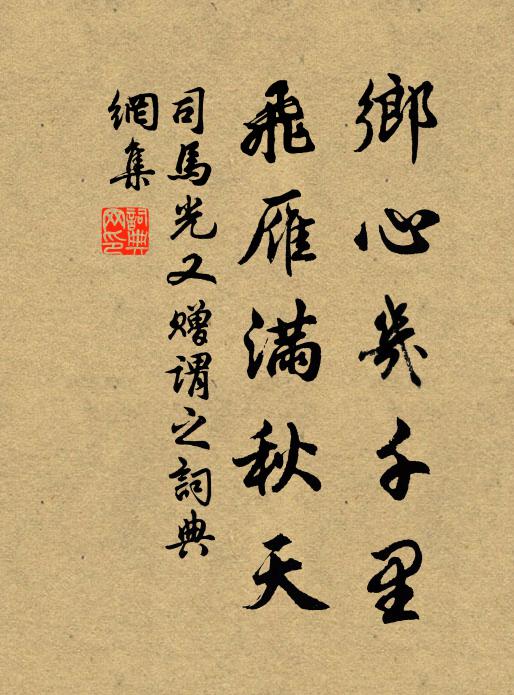 鄉心幾千里
飛雁滿秋天
司馬光又贈謂之詞典
網集
詞典網印